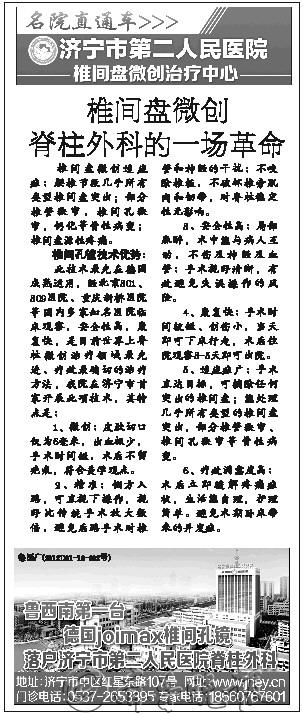 名院直通车>>>
济宁市第二人民医院
椎间盘微创治疗中心
椎间盘微创
脊柱外科的一场革命
椎间盘微创适应
症：腰椎节段几乎所有
类型椎间盘突出；部分
椎管狭窄，椎间孔狭
窄，钙化等骨性病变；
椎间盘源性疼痛。
椎间孔镜技术优势：
此技术最先在德国
点熟运用，经北京301、
309医院、重庆新桥医院
等国内多家知名医院临
床观察，安全性高，康
复快，是目前世界上脊
柱微创治疗领域最先
进、疗效最确切的治疗
方法，我院在济宁市首
家开展此项技术，其特
点是：
1、微创：皮肤切口
仅为6毫米，出血极少，
手术时间短，术后不留
疤痕，符合美学观点。
2、精准：侧方入
路，可直视下操作，视
野比传统手术放大数
倍，避免后路手术对椎
管和神经的干扰；不咬
除椎板，不破坏椎旁肌
肉和韧带，对脊柱稳定
性无影响。
3、安全性高：局部
麻醉，术中能与病人互
动，不伤及神经及血
管；手术视野清晰，有
效避免失误操作的风
险。
4、康复快：手术时
间较短、创伤小，当天
即可下床行走，术后住
院观察3-5天即可出院。
5、适应症广：手术
直达目标，可摘除任何
突出的椎间盘；能处理
几乎所有类型的椎间盘
突出，部分椎管狭窄、
椎间孔狭窄等骨性病
变。
6、疗效满意度高：
术后立即缓解疼痛症
状，生活能自理，护理
简单。避免术期卧床带
来的并发症。
鲁西南第一台
德国joimax椎间孔镜
落户济宁市第二人民医院脊柱外科
地址：济宁市中区红星东路107号 网址：www.jney.cn
门诊电话：0537-2653395 专家电话：18660767601